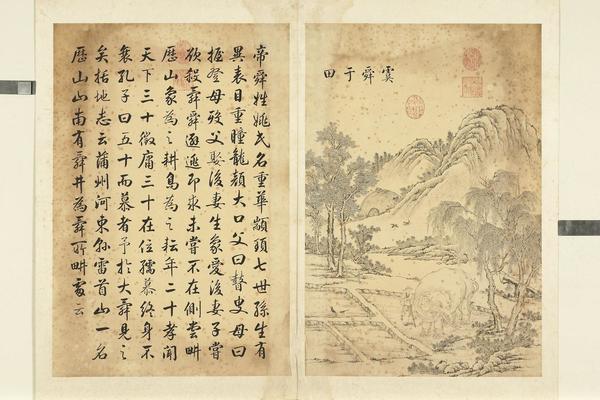 虞舜于田
帝舜姓姚氏名重華顓頊七世孫生有
異表目重瞳龍顏大口父曰瞽叟母曰
握登母歿父娶後妻生象愛後妻子嘗
欲殺舜舜遜避即求未嘗不在側嘗畊
歷山象為之耕鳥為之耘年二十孝聞
天下三十徵庸三十在位孺慕終身不
衰孔子曰五十而慕者予於大舜見之
矣括地志云蒲州河東縣雷首山一名
歷山山南有舜井為舜所畊處云